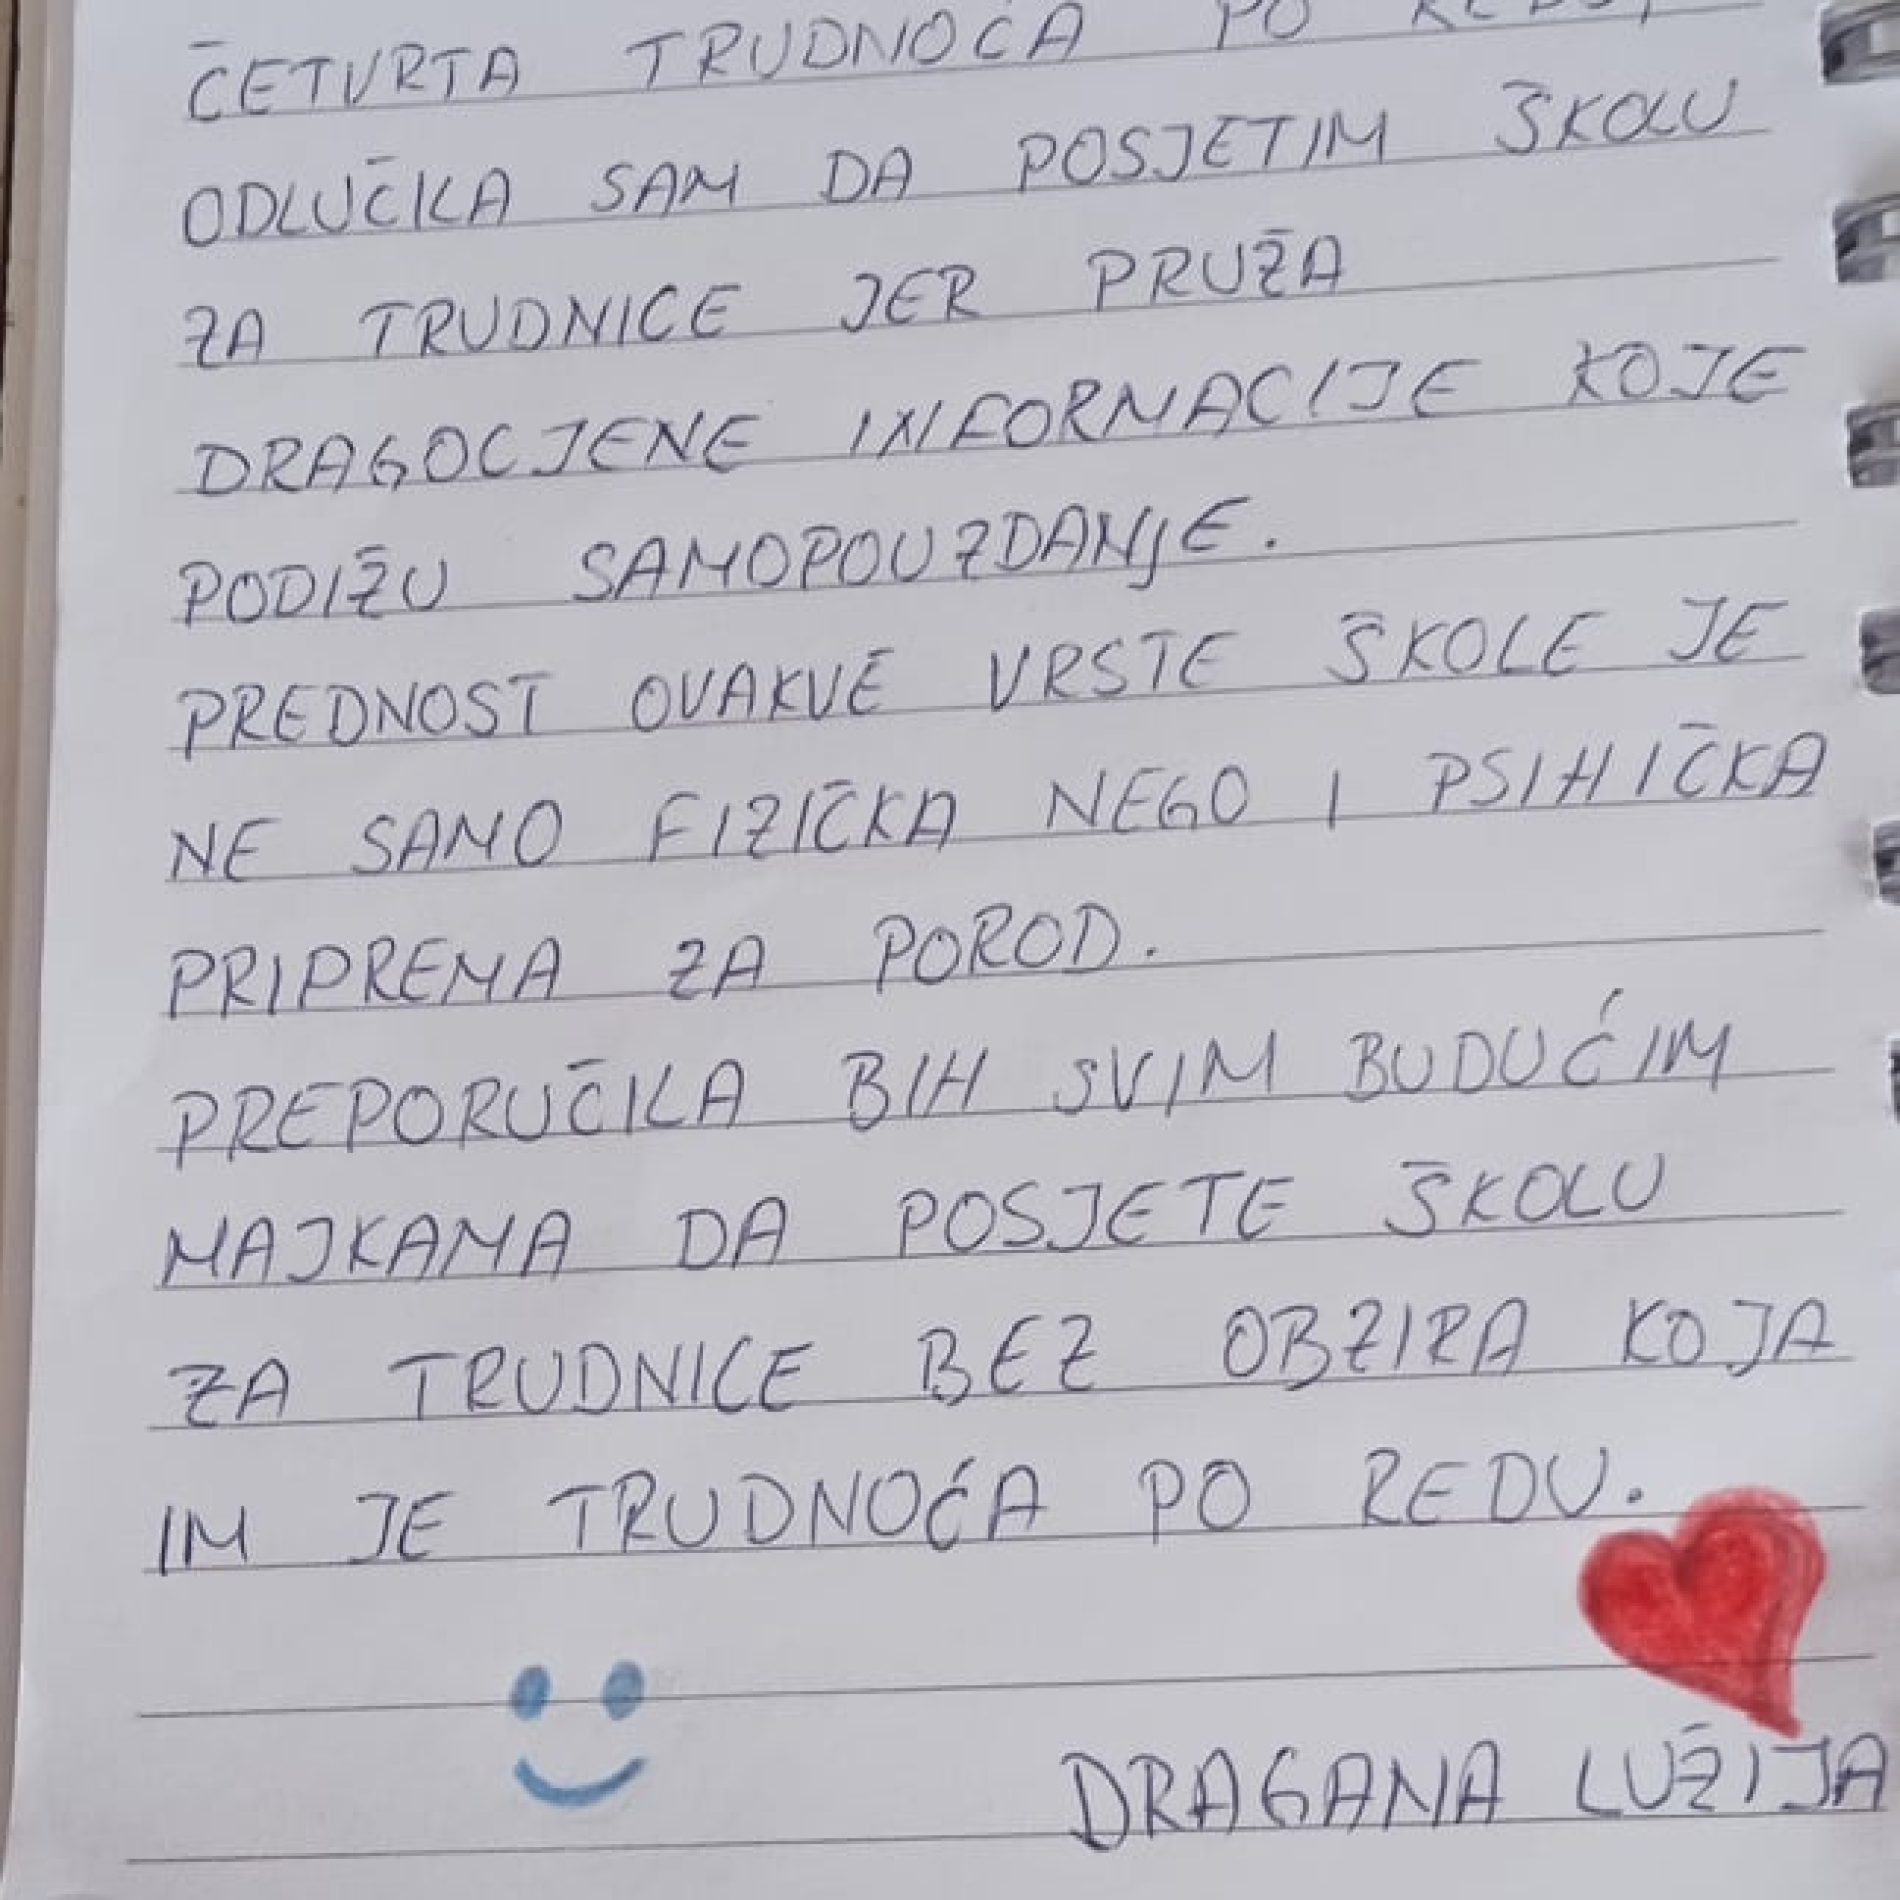 ČETVRTA TRUDNOĆA PO REDU,
ODLUČILA SAM DA POSJETIM ŠKOLU
ZA TRUDNICE JER PRUŽA
DRAGOCJENE INFORMACIJE KOJE
PODIŽU SAMOPOUZDANJE.
PREDNOST OVAKVE VRSTE ŠKOLE JE
NE SAMO FIZIČKA NEGO I PSIHIČKA
PRIPREMA ZA POROD.
PREPORUČILA BIH SVIM BUDUĆIM
MAJKAMA DA POSJETE ŠKOLU
ZA TRUDNICE BEZ OBZIRA KOJA
IM JE TRUDNOĆA PO REDU.
DRAGANA LUŽIJA